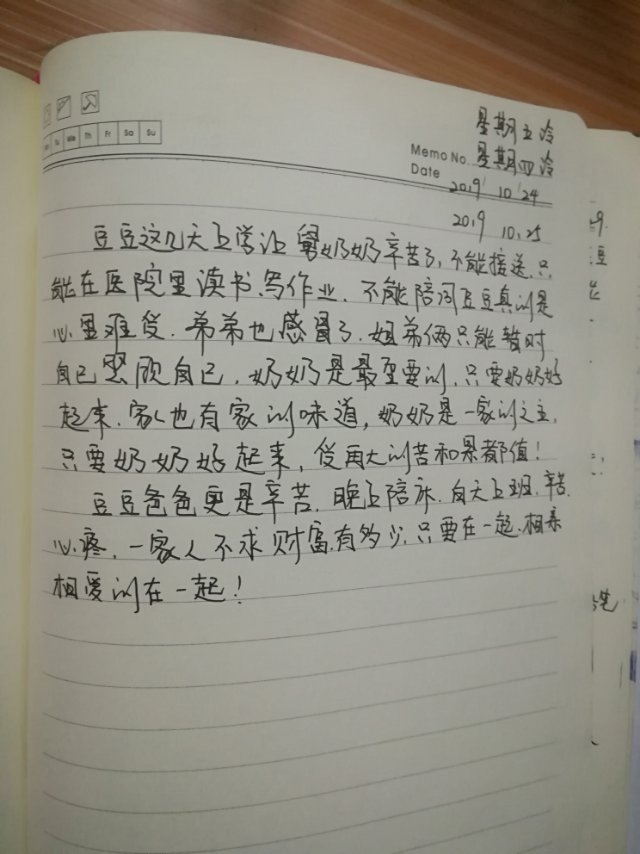 Tu We Th Fr Sa Su
星期五冷
Memo No. 星期四冷
Date 2019 10 24
2019 10.25
豆豆这几天上学让舅奶奶辛苦了,不能接送,只
能在医院里读书,写作业.不能陪同豆豆真的是
心里难受.弟弟也感冒了.姐弟俩只能暂时
自己照顾自己.奶奶是最重要的.只要奶奶好
起来.家人也有家的味道,奶奶是一家的之主.
只要奶奶好起来,受再大的苦和累都值!
豆豆爸爸更是辛苦.晚上陪床.白天上班.辛苦.
心疼.一家人不求财富有多少.只要在一起.相亲
相爱的在一起!